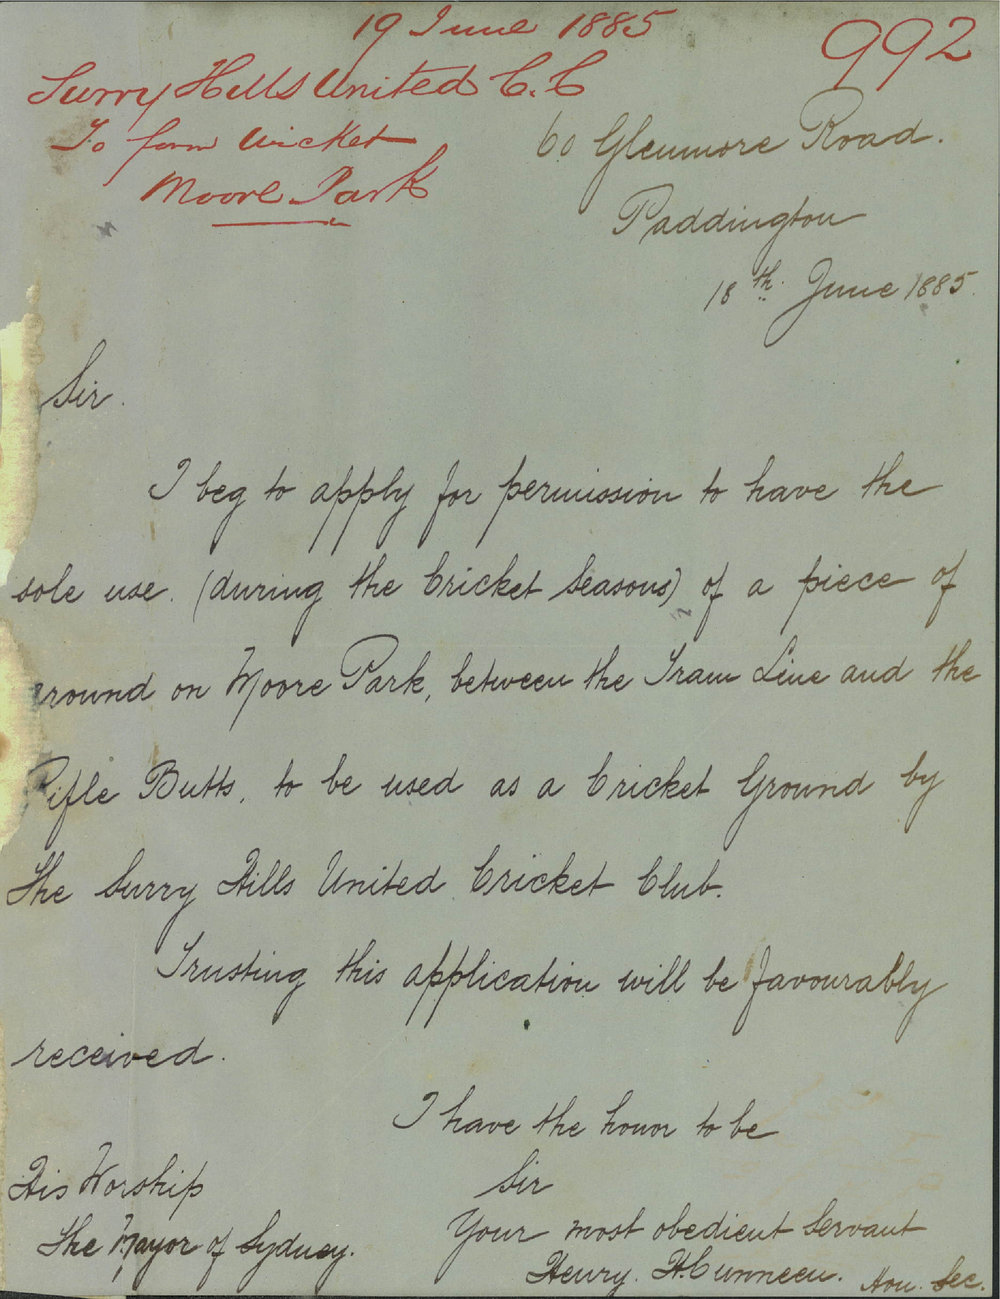 19 June 1885
992
Surry Hills United C.C
To form wicket
Moore Park
60 Glenmore Road.
Paddington
18th. June 1885.
Sir.
I beg to apply for permission to have the
sole use. (during the Cricket Seasons) of a piece of
ground on Moore Park, between the Tram Line and the
Rifle Butts, to be used as a Cricket Ground by
the Surry Hills United Cricket Club.
Trusting this application will be favourably
received.
I have the honor to be
Sir
Your most obedient Servant
Henry. H. Cunneen. Hon. Sec.
His Worship
The Mayor of Sydney.